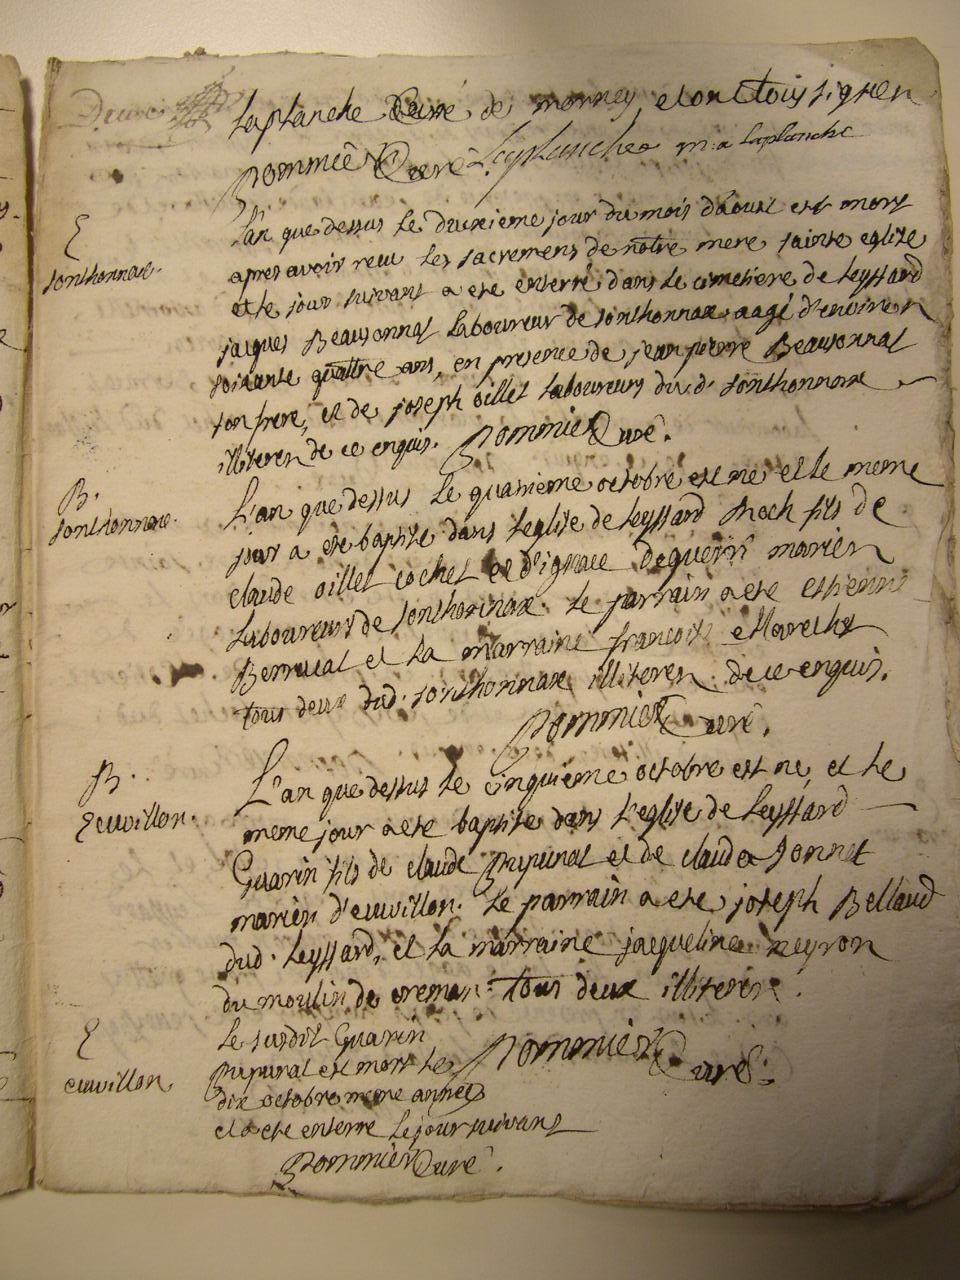 Laplanche Curé de mornay, et ont tous signer
Pommier Curé Laplanche m.a Laplanche
E
sonthonnax.
L'an que dessus le deuxieme jour du mois d'aoust est mort
apres avoir receu les sacremens de notre mere sainte eglise
et le jour suivant a ete enterré dans le cimetiere de leyssard
jaques Beausonnat laboureur de sonthonnax aagé d'environ
soixante quattre ans, en presence de jean pierre Beausonnat
son frere, et de joseph oillet laboureurs dud. sonthonnax
illiteres de ce enquis. Pommier Curé.
B.
sonthonnax.
L'an que dessus le quatrieme octobre est né et le meme
jour a été baptisé dans l'eglise de leyssard fils de
claude oillet cochet et d'ignace mariers
laboureurs de sonthonnax. le parrain a ete estienne
et la marraine françoise
tous deux dud. sonthonnax illiteres de ce enquis.
Pommier Curé.
B.
L'an que dessus le cinquieme octobre est né, et le
meme jour a ete baptisé dans l'eglise de leyssard
Guarin fils de claude et de clauda Jonnet
mariers d'euvillon. le parrain a ete joseph Bellaud
dud. leyssard, et la marraine jacqueline neyron
du moulin de tous deux illiteres.
E
euvillon.
le susdit Guarin
est mort le Pommier Curé.
dix octobre meme année
et a ete enterré le jour suivant
Pommier Curé.